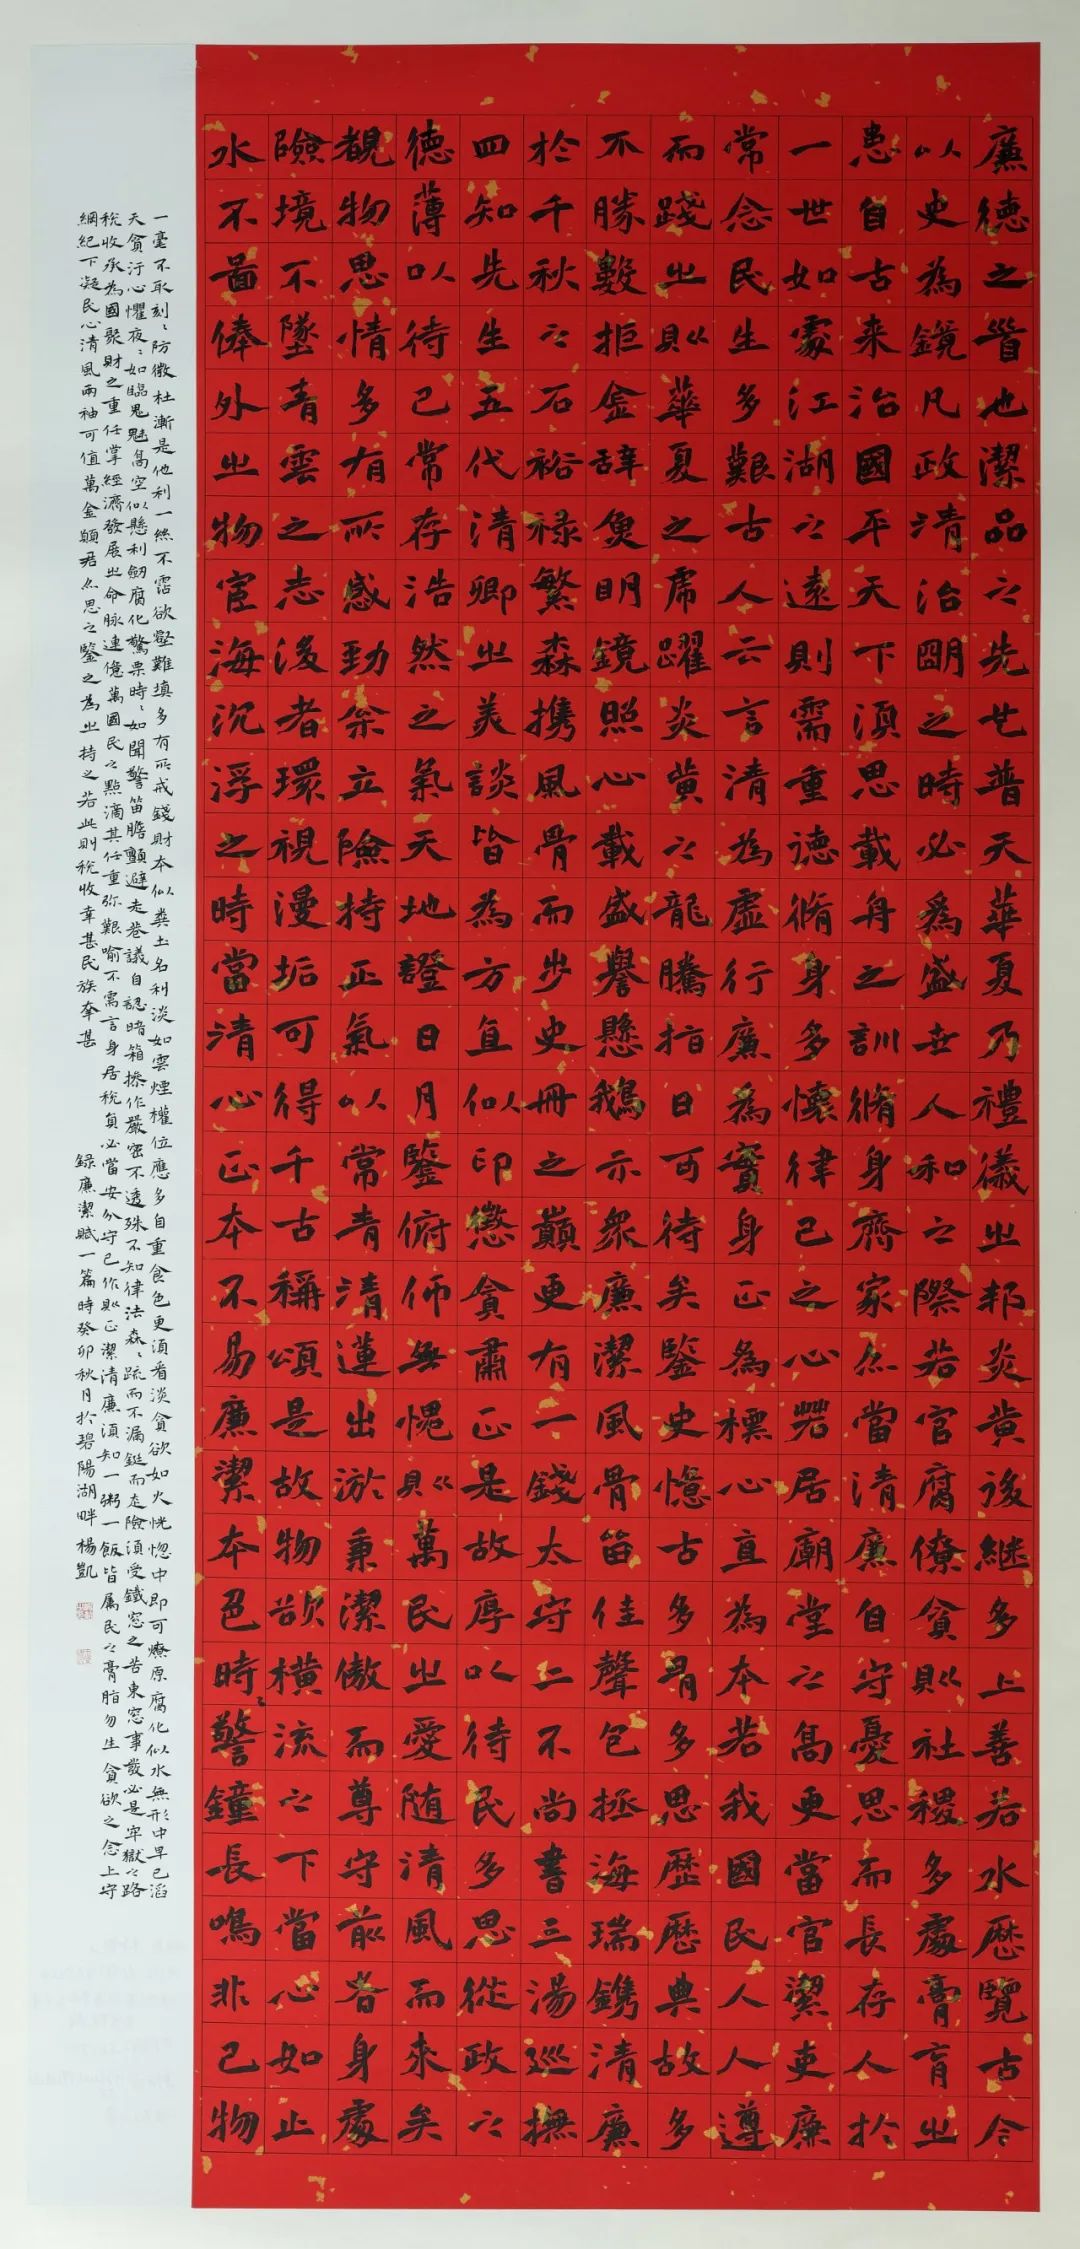 廉德之晉也潔品之先也普天華夏乃禮儀之邦炎黃後継多上善若水歷覽古今
以史為鏡凡政清治明之時必為盛世人和之際若官腐僚貪則社稷多處膏肓之
患自古来治國平天下須思載舟之訓脩身齊家亦當清廉自守憂思而長存人於
一世如處江湖之遠則需重德脩身多懷律己之心若居廟堂之高更當官潔吏廉
常念民生多艱古人云言清為虛行廉為實身正為標心直為本若我國民人人遵
而踐之則華夏之虎躍炎黃之龍騰指日可待矣鑒史憶古多胥多思歷歷典故多
不勝數拒金辞魚明鏡照心載盛譽懸鵝示衆廉潔風骨笛佳聲包拯海瑞鐫清廉
於千秋之石裕禄繁森携風骨而步史冊之巔更有一錢太守二不尚書三湯巡撫
四知先生五代清卿之美談皆為方直似印懲貪肅正是故厚以待民多思從政之
德薄以待己常存浩然之氣天地證日月鑒俯仰無愧則萬民之愛随清風而來矣
覩物思情多有所感勁余立險持正氣以常青清蓮出淤秉潔傲而尊守前者身處
險境不墜青雲之志後者環視漫垢可得千古稱頌是故物欲橫流之下當心如止
水不啚俸外之物宦海沉浮之時當清心正本不易廉潔本色時〻警鐘長鳴非己物
一毫不取刻〻防微杜漸是他利一絲不霑欲壑難填多有所戒錢財本似糞土名利淡如雲煙權位應多自重食色更須看淡貪欲如火恍惚中即可燎原腐化似水無形中早已滔
天貪汙心懼夜〻如臨鬼魅高空似懸利劍腐化驚栗時〻如聞警笛膽顫避走巷議自認暗箱操作嚴密不透殊不知律法森〻疏而不漏鋌而走險須受鐵窓之苦東窓事發必是牢獄之路
稅收承為國聚財之重任掌經濟發展之命脉連億萬國民之點滴其任重弥艱喻不需言身居稅負必當安分守己作則正潔清廉須知一粥一飯皆属民之膏脂勿生貪欲之念上守
綱紀下凝民心清風兩袖可值萬金願君亦思之鑒之為之持之若此則稅收幸甚民族幸甚 録廉潔賦一篇時癸卯秋月於碧陽湖畔楊凱